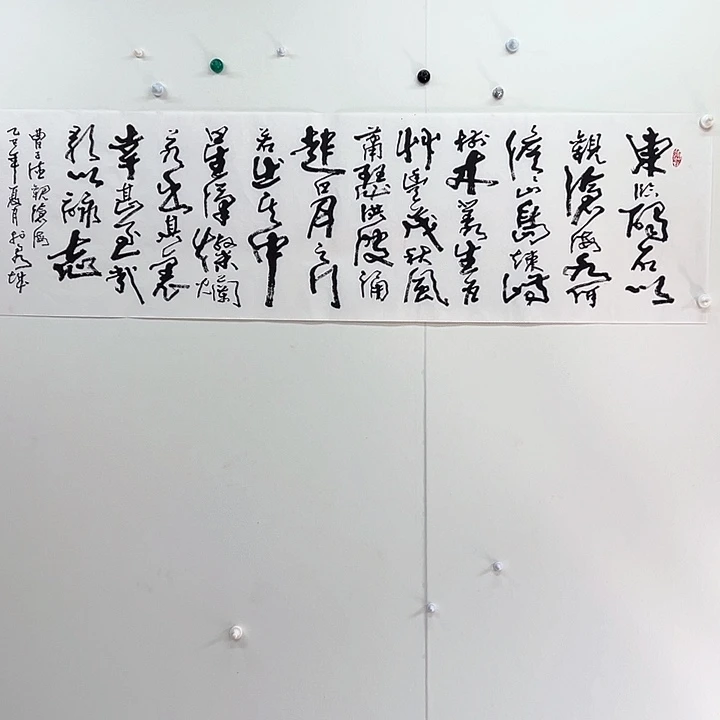 東臨碣石以
觀滄海水何
澹〻山島竦峙
樹木叢生百
艸豐茂秋風
蕭瑟洪波涌
起日月之行
若出其中
星漢燦爛
若出其裏
幸甚至哉
歌以詠志
曹孟德觀滄海
乙巳年夏月於泉城